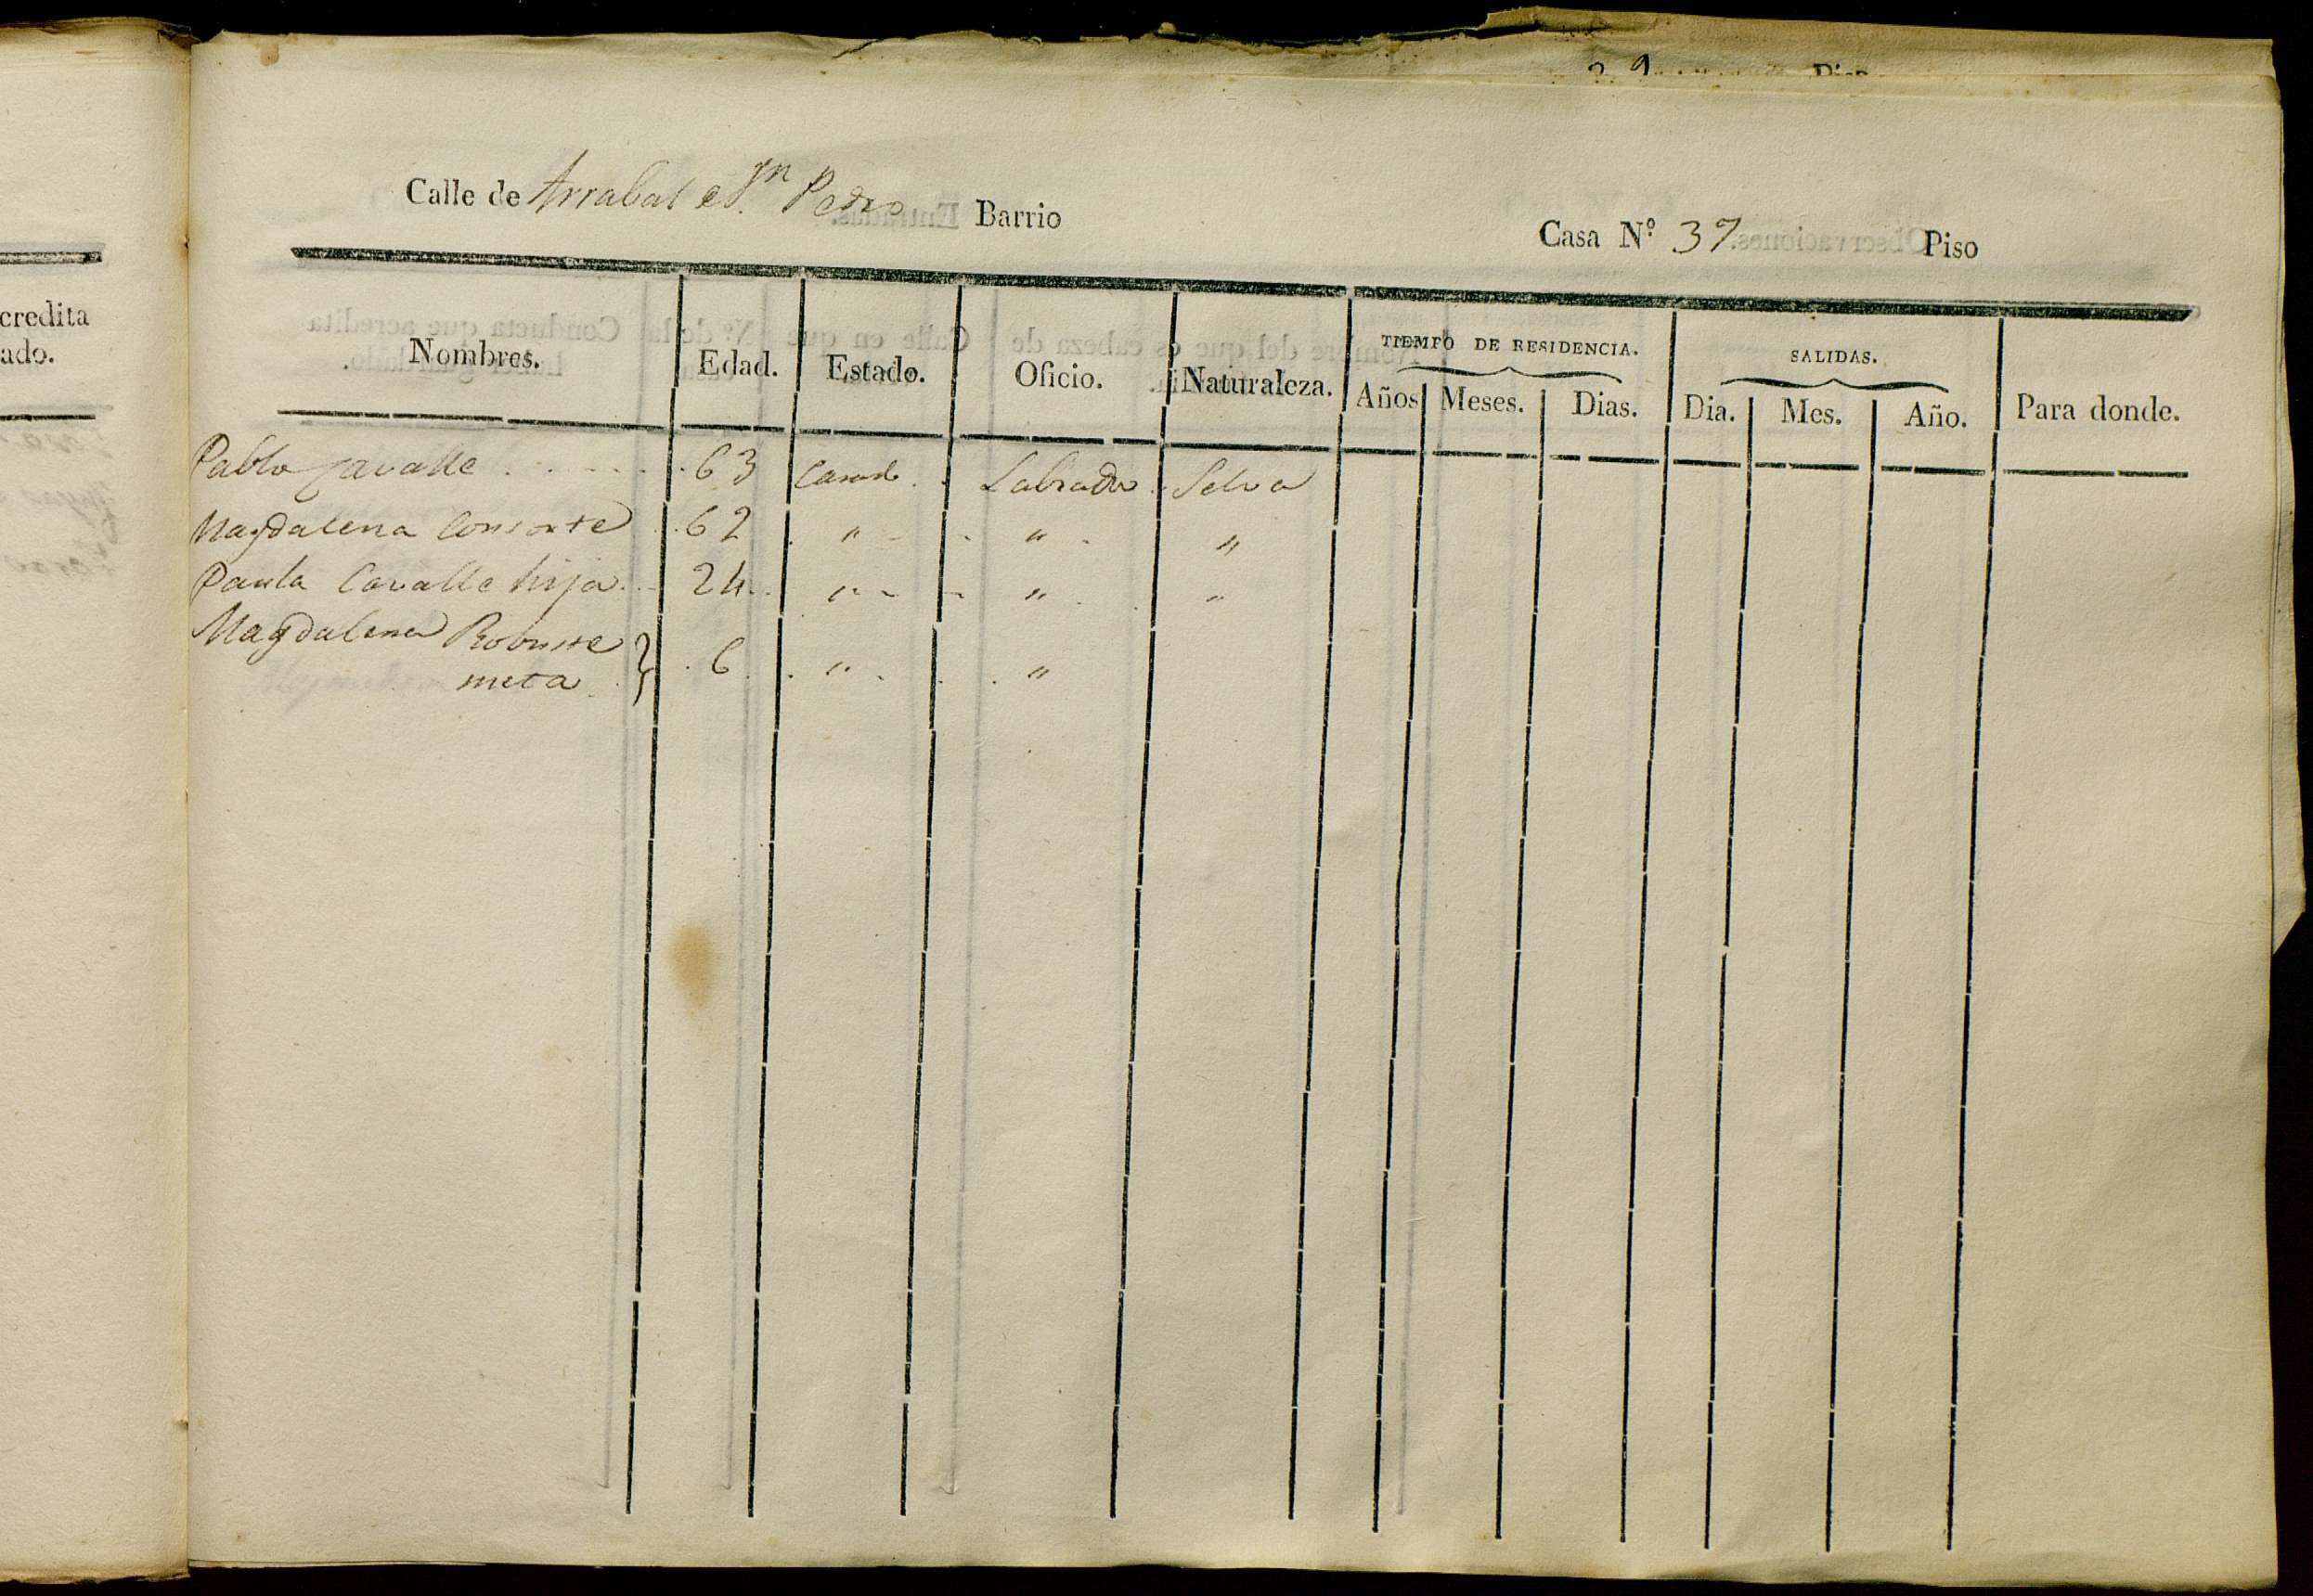 Piso
credita
ado.
Calle de Arrabal e Sn Pedro Barrio Casa N.º 37 Piso
Nombres. Edad. Estado. Oficio. Naturaleza. TIEMPO DE RESIDENCIA. SALIDAS. Para donde.
Años Meses. Dias. Dia. Mes. Año.
Pablo Cavalle 63 Casado Labrador Selva
Magdalena Consorte 62 " " "
Paula Cavalle hija 24 " " "
Magdalena Robuste
nieta } 6 " "